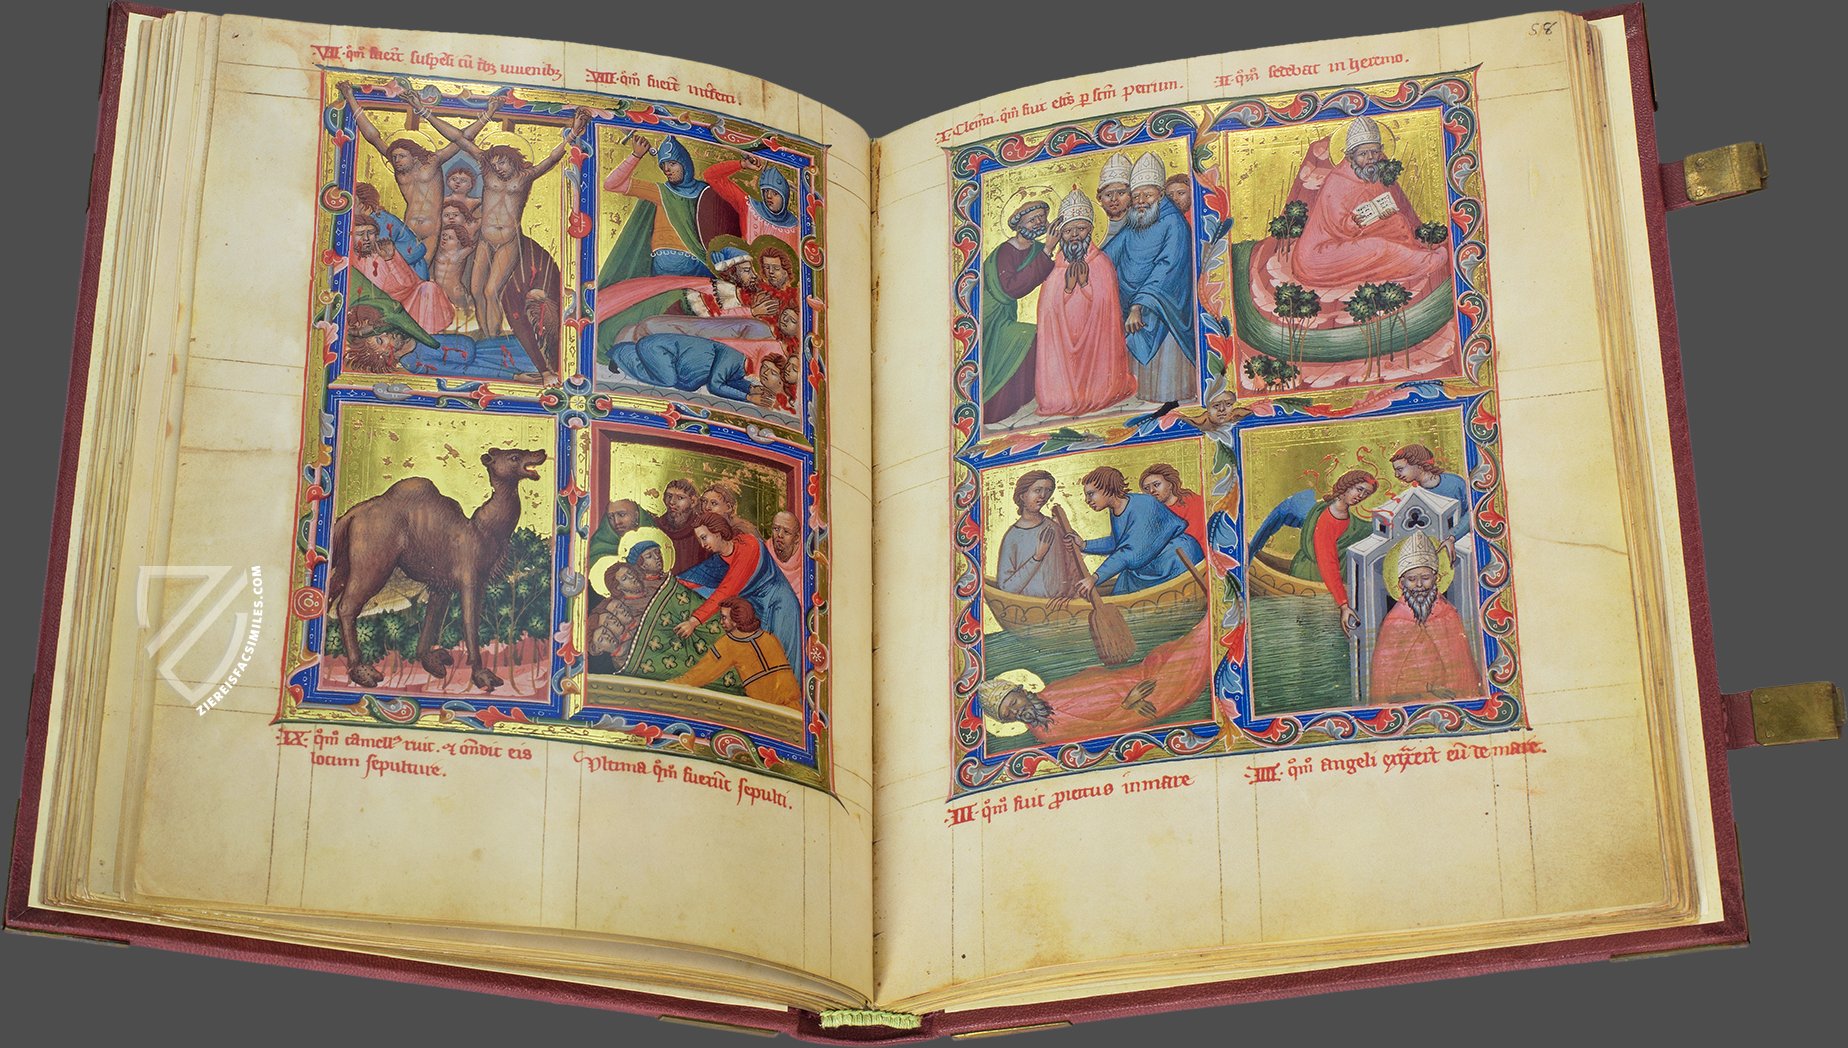 ·VII· qm̄ fuert̄ suspēsi cū trībꝫ iuuenibꝫ
·VIII· qm̄ fuert̄ inťfecti.
·IX· qm̄ camell᷒ ruit. ⁊ on̄dit eis
locum sepulture.
Vltima qm̄ fuerūt sepulti.
58
·I· Clem̄ti. qm̄ fuit elc̄s ꝑ sc̄m petrum.
·II· qm̄ sedebat in heremo.
·III· qm̄ fuit ꝓiectus in mare
·IIII· qm̄ angeli
eū de mare.
ZIEREISFACSIMILES.COM